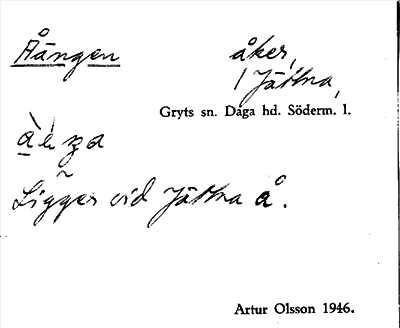 Åängen åker,
i Jättna,
Gryts sn. Daga hd. Söderm. l.
Ligger vid Jättna å.
Artur Olsson 1946.